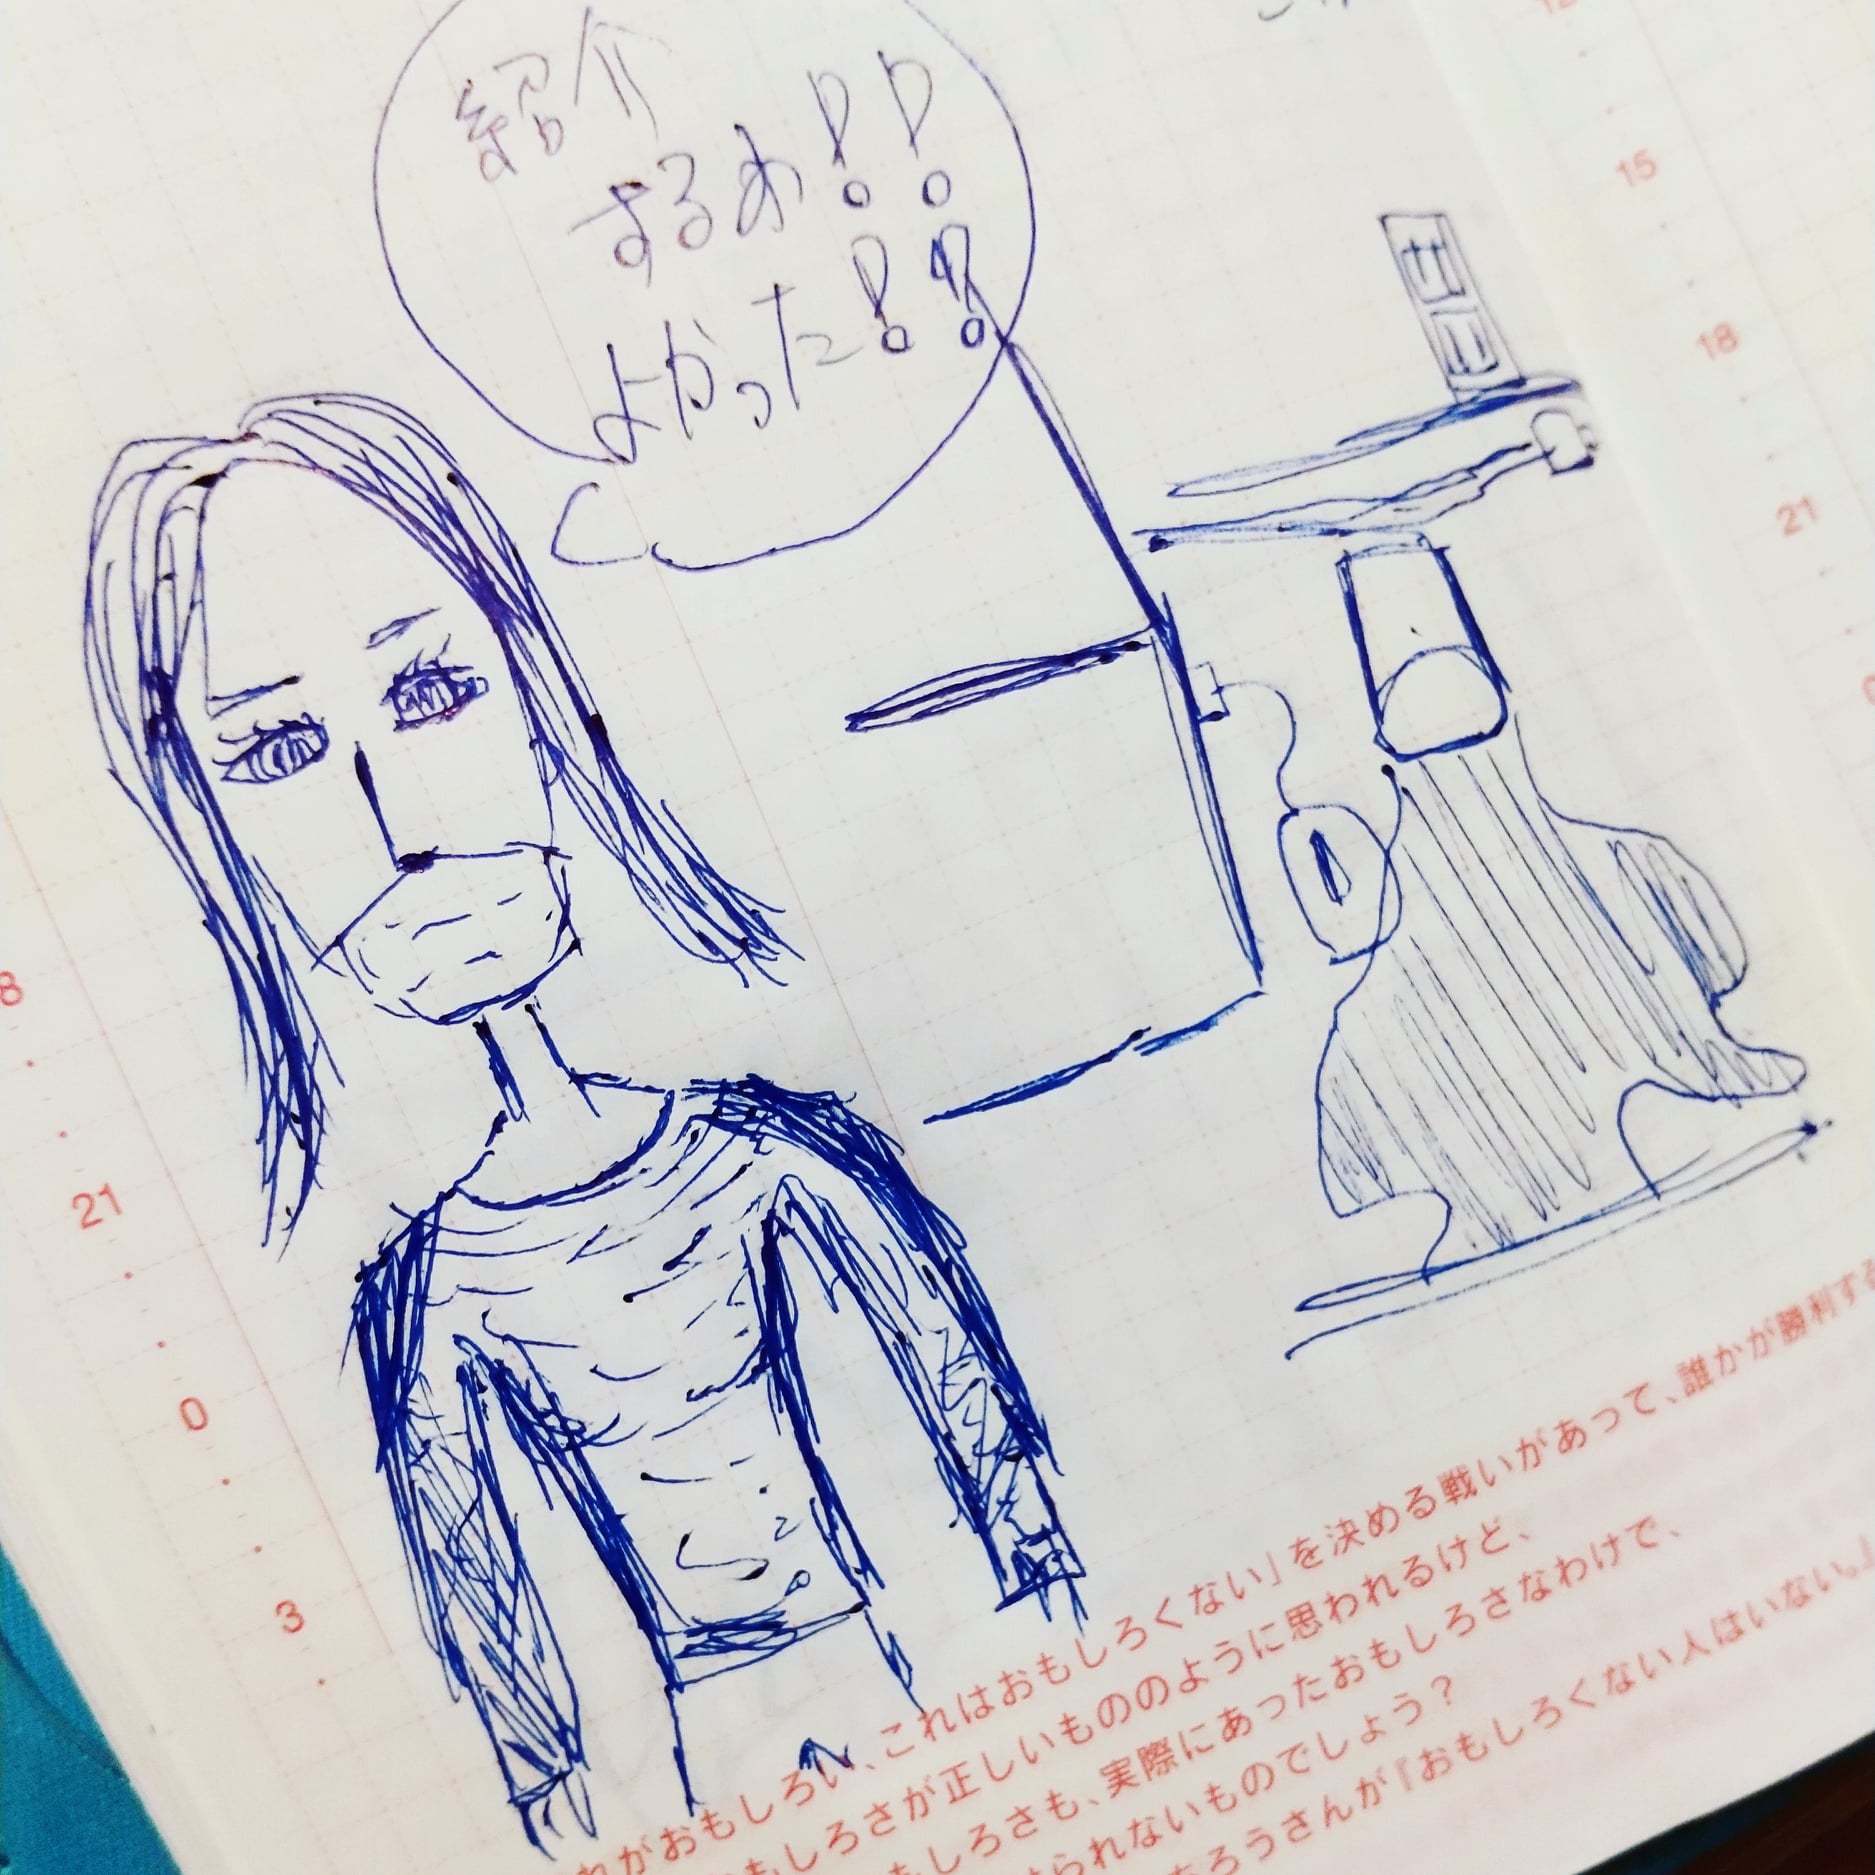 紹介
するわ!!
よかった!!
15
18
21
8
21
0
3
おもしろい、これはおもしろくない」を決める戦いがあって、誰かが勝利する
しろさが正しいもののように思われるけど、
しろさも、実際にあったおもしろさなわけで、
られないものでしょう?
ろうさんが『おもしろくない人はいない。